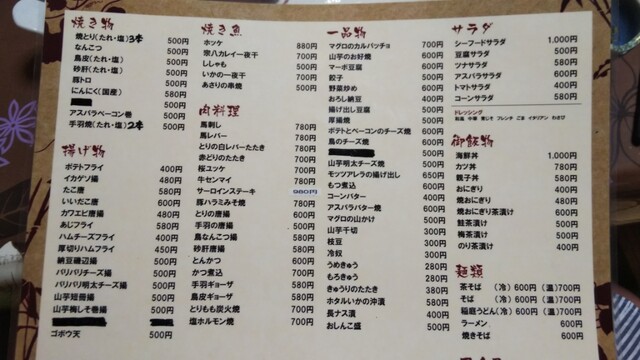 焼き物
焼とり(たれ・塩)3本 500円
なんこつ 500円
鳥皮(たれ・塩) 500円
砂肝(たれ・塩) 500円
豚トロ 500円
にんにく(国産) 580円
500円
アスパラベーコン巻 500円
手羽焼(たれ・塩)2本 500円
揚げ物
ポテトフライ 400円
イカゲソ揚 480円
たこ唐 580円
いいだこ唐 600円
カワエビ唐揚 480円
あじフライ 580円
ハムチーズフライ 400円
厚切りハムフライ 450円
納豆磯辺揚 500円
パリパリチーズ揚 500円
パリパリ明太チーズ揚 500円
山芋短冊揚 500円
山芋梅しそ巻揚 500円
ゴボウ天 500円
焼き魚
ホッケ 880円
宗八カレイ一夜干 700円
ししゃも 500円
いかの一夜干 700円
あさりの串焼 500円
肉料理
馬刺し 780円
馬レバー 780円
とりの白レバーたたき 780円
赤とりのたたき 700円
桜ユッケ 700円
牛センマイ 780円
サーロインステーキ 980円
豚ハラミみそ焼 780円
とりの唐揚 500円
手羽の唐揚 500円
鳥なんこつ揚 580円
砂肝唐揚 580円
とんかつ 600円
かつ煮込 700円
手羽ギョーザ 580円
鳥皮ギョーザ 580円
とりもも炭火焼 700円
塩ホルモン焼 700円
一品物
マグロのカルパッチョ 700円
山芋のお好焼 600円
マーボ豆腐 600円
餃子 500円
野菜炒め 600円
おろし納豆 400円
揚げ出し豆腐 500円
厚揚焼 500円
ポテトとベーコンのチーズ焼 600円
鳥のチーズ焼 600円
山芋明太チーズ焼 500円
モッツアレラの揚げ出し 650円
もつ煮込 600円
コーンバター 400円
アスパラバター焼 600円
マグロの山かけ 500円
山芋千切 300円
枝豆 300円
冷奴 300円
うめきゅう 280円
もろきゅう 280円
きゅうりのたたき 380円
ホタルいかの沖漬 580円
長ナス漬 400円
おしんこ盛 500円
サラダ
シーフードサラダ 1,000円
豆腐サラダ 500円
ツナサラダ 580円
アスパラサラダ 600円
トマトサラダ 400円
コーンサラダ 580円
ドレッシング
和風 中華 青じそ フレンチ ごま イタリアン わさび
御飯物
海鮮丼 1,000円
カツ丼 780円
親子丼 580円
おにぎり 400円
焼おにぎり 480円
焼おにぎり茶漬け 600円
鮭茶漬け 500円
梅茶漬け 500円
のり茶漬け 400円
麺類
茶そば (冷)600円 (温)700円
そば (冷)600円 (温)700円
稲庭うどん(冷)600円 (温)700円
ラーメン 600円
焼きそば 600円